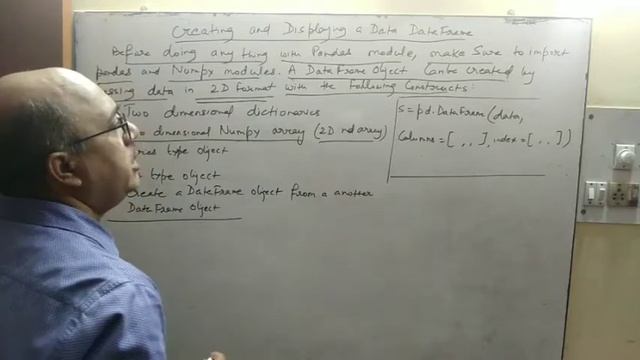 Creating and Displaying a Data DateFrame
Before doing any thing with Pandas module, make Sure to import
pandas and Numpy modules. A DataFrame Object Can be created by
ssing data in 2D format with the following Constructs:
Two dimensional dictionaries
dimensional Numpy array (2D nd array)
type object
type object
Create a DateFrame object from a another
DateFrame Object
S = pd.DataFrame(data,
Columns = [ , , ], index = [ , , ])